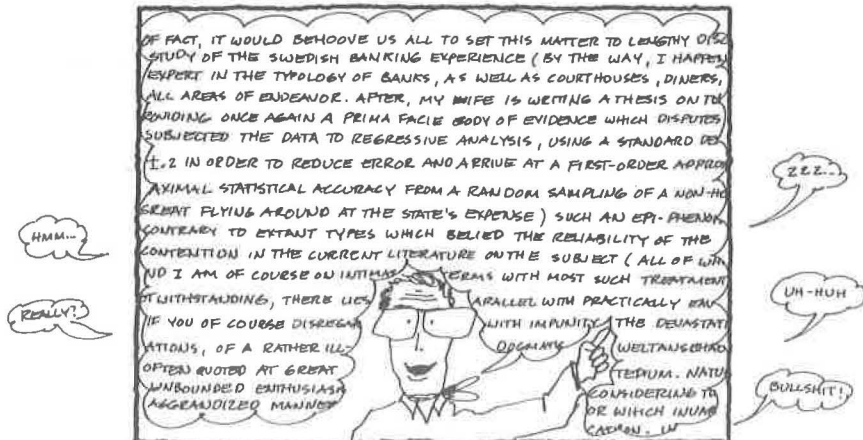 OF FACT, IT WOULD BEHOOVE US ALL TO SET THIS MATTER TO LENGTHY DISC
STUDY OF THE SWEDISH BANKING EXPERIENCE (BY THE WAY, I HAPPEN
EXPERT IN THE TYPOLOGY OF BANKS, AS WELL AS COURTHOUSES, DINERS,
ALL AREAS OF ENDEAVOR. AFTER, MY WIFE IS WRITING A THESIS ON TH
ROVIDING ONCE AGAIN A PRIMA FACIE BODY OF EVIDENCE WHICH DISPUTES
SUBJECTED THE DATA TO REGRESSIVE ANALYSIS, USING A STANDARD DE
±.2 IN ORDER TO REDUCE ERROR AND ARRIVE AT A FIRST-ORDER APPROX
AXIMAL STATISTICAL ACCURACY FROM A RANDOM SAMPLING OF A NON-HO
GREAT FLYING AROUND AT THE STATE'S EXPENSE) SUCH AN EPI-PHENOM
CONTRARY TO EXTANT TYPES WHICH BELIED THE RELIABILITY OF THE
CONTENTION IN THE CURRENT LITERATURE ON THE SUBJECT (ALL OF WHI
ND I AM OF COURSE ON INTIMA TERMS WITH MOST SUCH TREATMENT
OTWITHSTANDING, THERE LIES ARALLEL WITH PRACTICALLY
IF YOU OF COURSE DISREGAR WITH IMPUNITY THE DEVASTATI
ATIONS, OF A RATHER ILL- DOGMATIC WELTANSCHAU
OFTEN QUOTED AT GREAT TEDIUM. NATU
UNBOUNDED ENTHUSIASM CONSIDERING TH
AGGRANDIZED MANNER OR WHICH
IN
HMM...
REALLY?
ZZZ...
UH-HUH
BULLSHIT!